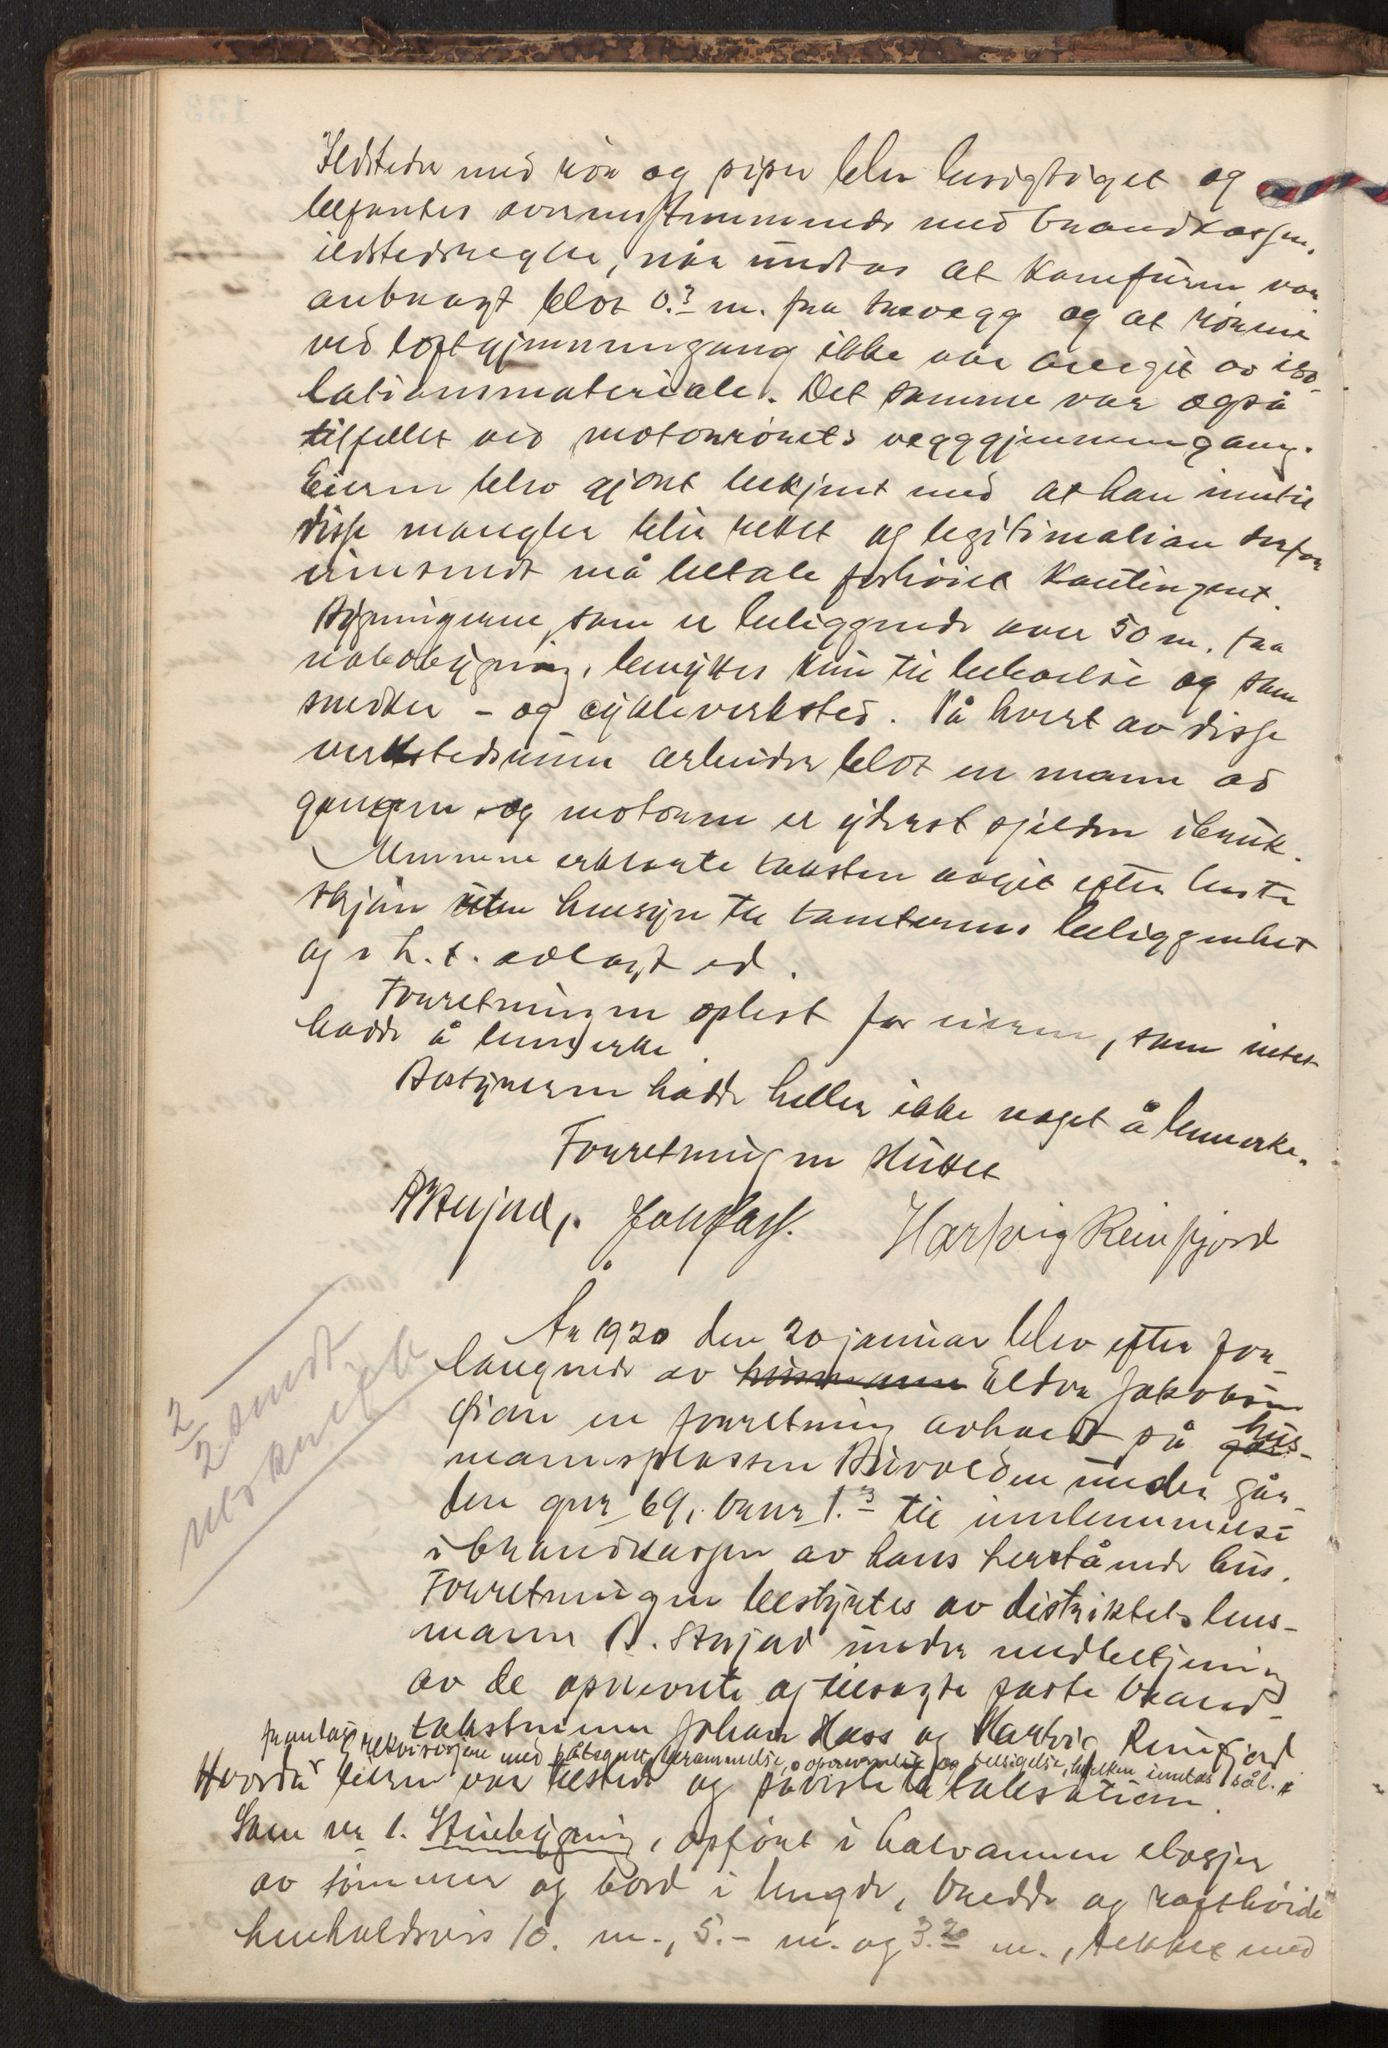 Ildsteder med rör og piper blev besigtiget og
befantes overensstemmende med brandkassens
ildstedsregler, når undtas at komfuren var
anbragt blot 0.3 m. fra trevegg og at rörene
ved loftgjennemgang ikke var omgit av iso-
lationsmateriale. Det samme var også
tilfellet ved motorrörets vegggjennemgang.
Eieren blev gjort bekjent med at han inntil
disse mangler blir rettet og legitimation derfor
innsendt må betale forhöiet kontingent.
Bygningerne, som er beliggende over 50 m. fra
nabobygning, benyttes kun til beboelse og som
snedker- og cykleverksted. På hvert av disse
verkstedsrum arbeider blot en mann ad
gangen og motoren er yderst sjelden i bruk.
Mennene erklærte taksten avgit efter beste
skjön uten hensyn til tomternes beliggenhet
og i h. t. avlagt ed.
Forretningen oplest for eieren, som intet
hadde å bemerke.
Bestyreren hadde heller ikke noget å bemerke.
Forretningen sluttet
Hartvig Reinfjord
År 1920 den 20 januar blev efter for-
langende av husmann Eldor Jakobsen
Öian en forretning avholdt på går hus-
mannsplassen under går-
den gnr 69, bnr 1.3 til innlemmelse
i brandkassen av hans herstående hus.
Forretningen bestyrtes av distriktets lens-
mann under medbetjening
av de opnevnte og tilsagte faste brand-
takstmenn Johan Hass og Hartvig Reinfjord
fremlagt rekvisisjon med påtegnet berammelse, opnevnelse og tilsigelse, hvilken inntas sål.
Hvorda eieren var tilstede og påviste til taksation.
2/2 sendt
utskrift
Som nr 1. Stuebygning, opfört i halvannen etasje
av tömmer og bord i lengde, bredde og rafthöide
henholdsvis 10. m., 5.- m. og 3.20 m., tekket med